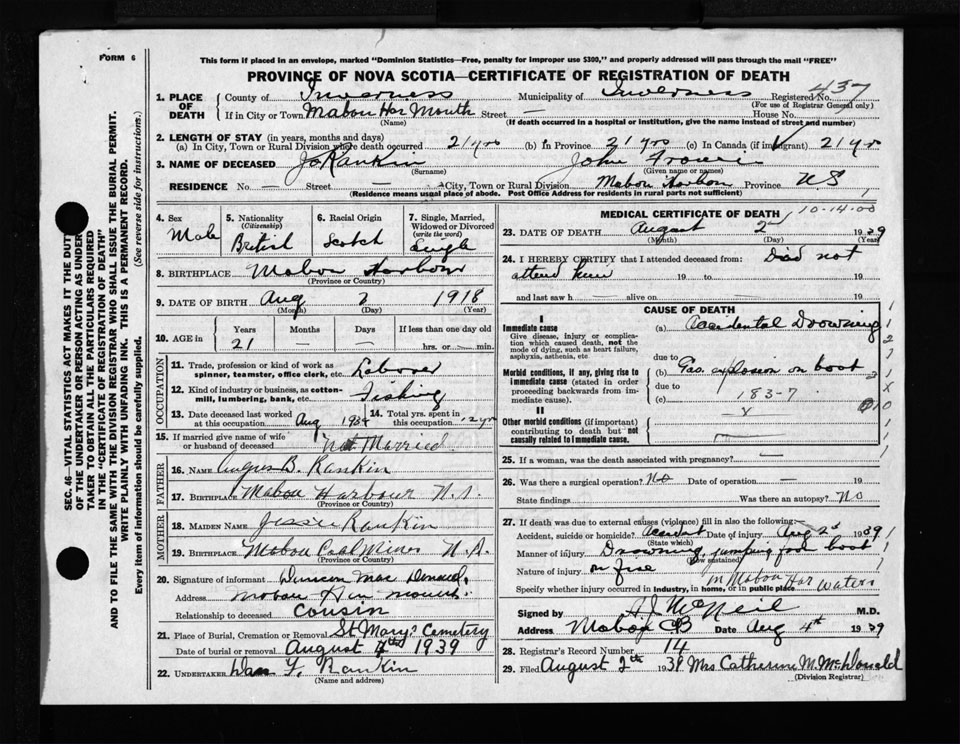 FORM 6
This form if placed in an envelope, marked "Dominion Statistics—Free, penalty for improper use $300," and properly addressed will pass through the mail "FREE"
PROVINCE OF NOVA SCOTIA—CERTIFICATE OF REGISTRATION OF DEATH
437
1. PLACE OF DEATH County of Inverness Municipality of Inverness Registered No.
(For use of Registrar General only)
If in City or Town Mabou Har Mouth Street — House No.
(Name) (If death occurred in a hospital or institution, give the name instead of street and number)
2. LENGTH OF STAY (in years, months and days)
(a) In City, Town or Rural Division where death occurred 21 yrs (b) in Province 21 yrs (c) In Canada (if immigrant) 21 yr
3. NAME OF DECEASED Rankin John
(Surname) (Given name or names)
RESIDENCE No. — Street — City, Town or Rural Division Mabou Harbour Province N S
(Residence means usual place of abode. Post Office Address for residents in rural parts not sufficient)
4. Sex Male
5. Nationality (Citizenship) British
6. Racial Origin Scotch
7. Single, Married, Widowed or Divorced (write the word) Single
8. BIRTHPLACE Mabou Harbour
(Province or Country)
9. DATE OF BIRTH Aug 2 1918
(Month) (Day) (Year)
10. AGE in Years 21 Months — Days — If less than one day old
hrs. or — min.
OCCUPATION
11. Trade, profession or kind of work as spinner, teamster, office clerk, etc. Laborer
12. Kind of industry or business, as cotton-mill, lumbering, bank, etc. Fishing
13. Date deceased last worked at this occupation Aug
14. Total yrs. spent in this occupation
15. If married give name of wife or husband of deceased Not Married
FATHER
16. NAME Angus B. Rankin
17. BIRTHPLACE Mabou Harbour N.S.
(Province or Country)
MOTHER
18. MAIDEN NAME Jessie Rankin
19. BIRTHPLACE Mabou Coal Mines N.S.
(Province or Country)
20. Signature of informant Duncan Mac Donald
Address Mabou Har mouth
Relationship to deceased Cousin
21. Place of Burial, Cremation or Removal St Marys Cemetery
Date of burial or removal August 4th 1939
22. UNDERTAKER Dan F. Rankin
(Name and address)
MEDICAL CERTIFICATE OF DEATH
10-14-00
23. DATE OF DEATH August 2nd 1939
(Month) (Day) (Year)
24. I HEREBY CERTIFY that I attended deceased from: Did not
attend him 19 to 19
and last saw h — alive on — 19
CAUSE OF DEATH
I
Immediate cause
Give disease, injury or complication which caused death, not the mode of dying, such as heart failure, asphyxia, asthenia, etc
(a) Accidental Drowning
due to
Morbid conditions, if any, giving rise to immediate cause (stated in order proceeding backwards from immediate cause).
(b) Gas explosion on boat
due to
(c) 183-7
x
II
Other morbid conditions (if important) contributing to death but not causally related to immediate cause.
25. If a woman, was the death associated with pregnancy? —
26. Was there a surgical operation? No Date of operation —
State findings Was there an autopsy? No
27. If death was due to external causes (violence) fill in also the following:—
Accident, suicide or homicide? Accident Date of injury Aug 2nd 1939
(State which)
Manner of injury Drowning, jumping from boat
(How sustained)
Nature of injury on fire
in Mabou Har waters
Specify whether injury occurred in industry, in home, or in public place
Signed by McNeil M.D.
Address Mabou CB Date Aug 4th 1939
28. Registrar's Record Number 14
29. Filed August 2th 1939 Mrs Catherine M. McDonald
(Division Registrar)
SEC. 46—VITAL STATISTICS ACT MAKES IT THE DUTY
OF THE UNDERTAKER OR PERSON ACTING AS UNDERTAKER TO OBTAIN ALL THE PARTICULARS REQUIRED
IN THE "CERTIFICATE OF REGISTRATION OF DEATH"
AND TO FILE THE SAME WITH THE DIVISION REGISTRAR WHO SHALL ISSUE THE BURIAL PERMIT.
WRITE PLAINLY WITH UNFADING INK. THIS IS A PERMANENT RECORD.
Every item of information should be carefully supplied. (See reverse side for instructions.)